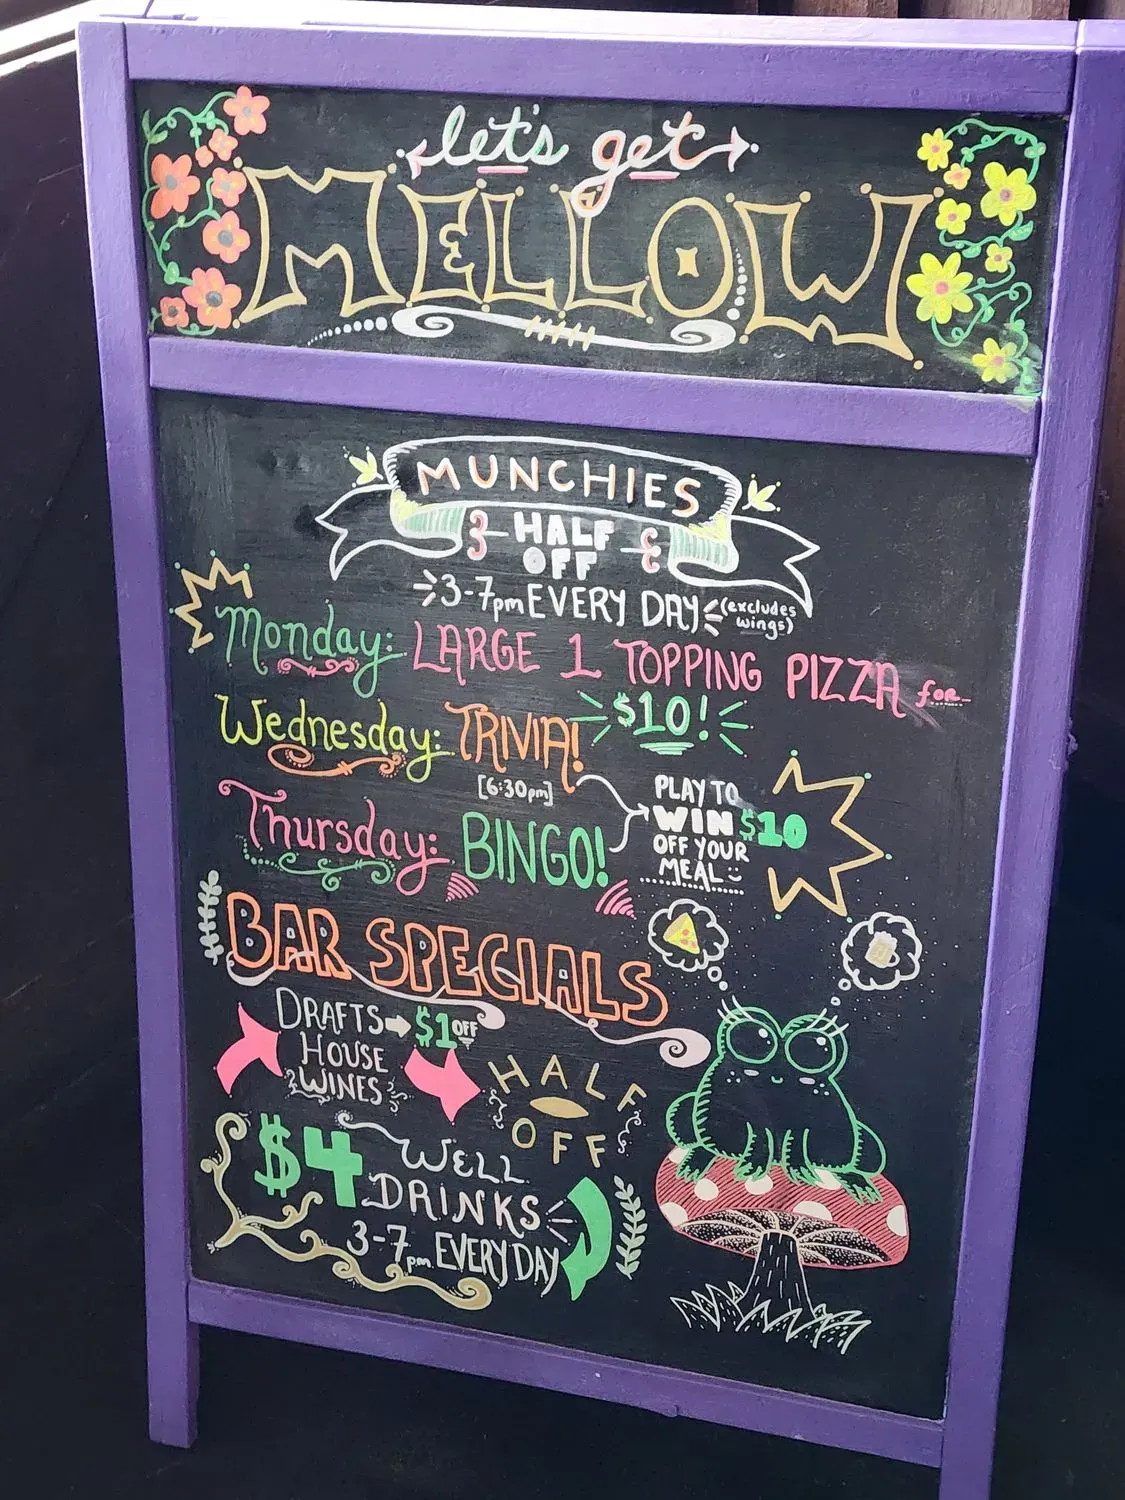 let's get
MELLOW
MUNCHIES
HALF
OFF
3-7pm EVERY DAY (excludes wings)
Monday: LARGE 1 TOPPING PIZZA for...
$10!
Wednesday: TRIVIA!
[6:30pm]
Thursday: BINGO!
PLAY TO
WIN $10
OFF YOUR
MEAL
BAR SPECIALS
DRAFTS $1 OFF
HOUSE
WINES
HALF
OFF
$4 WELL
DRINKS
3-7pm EVERY DAY